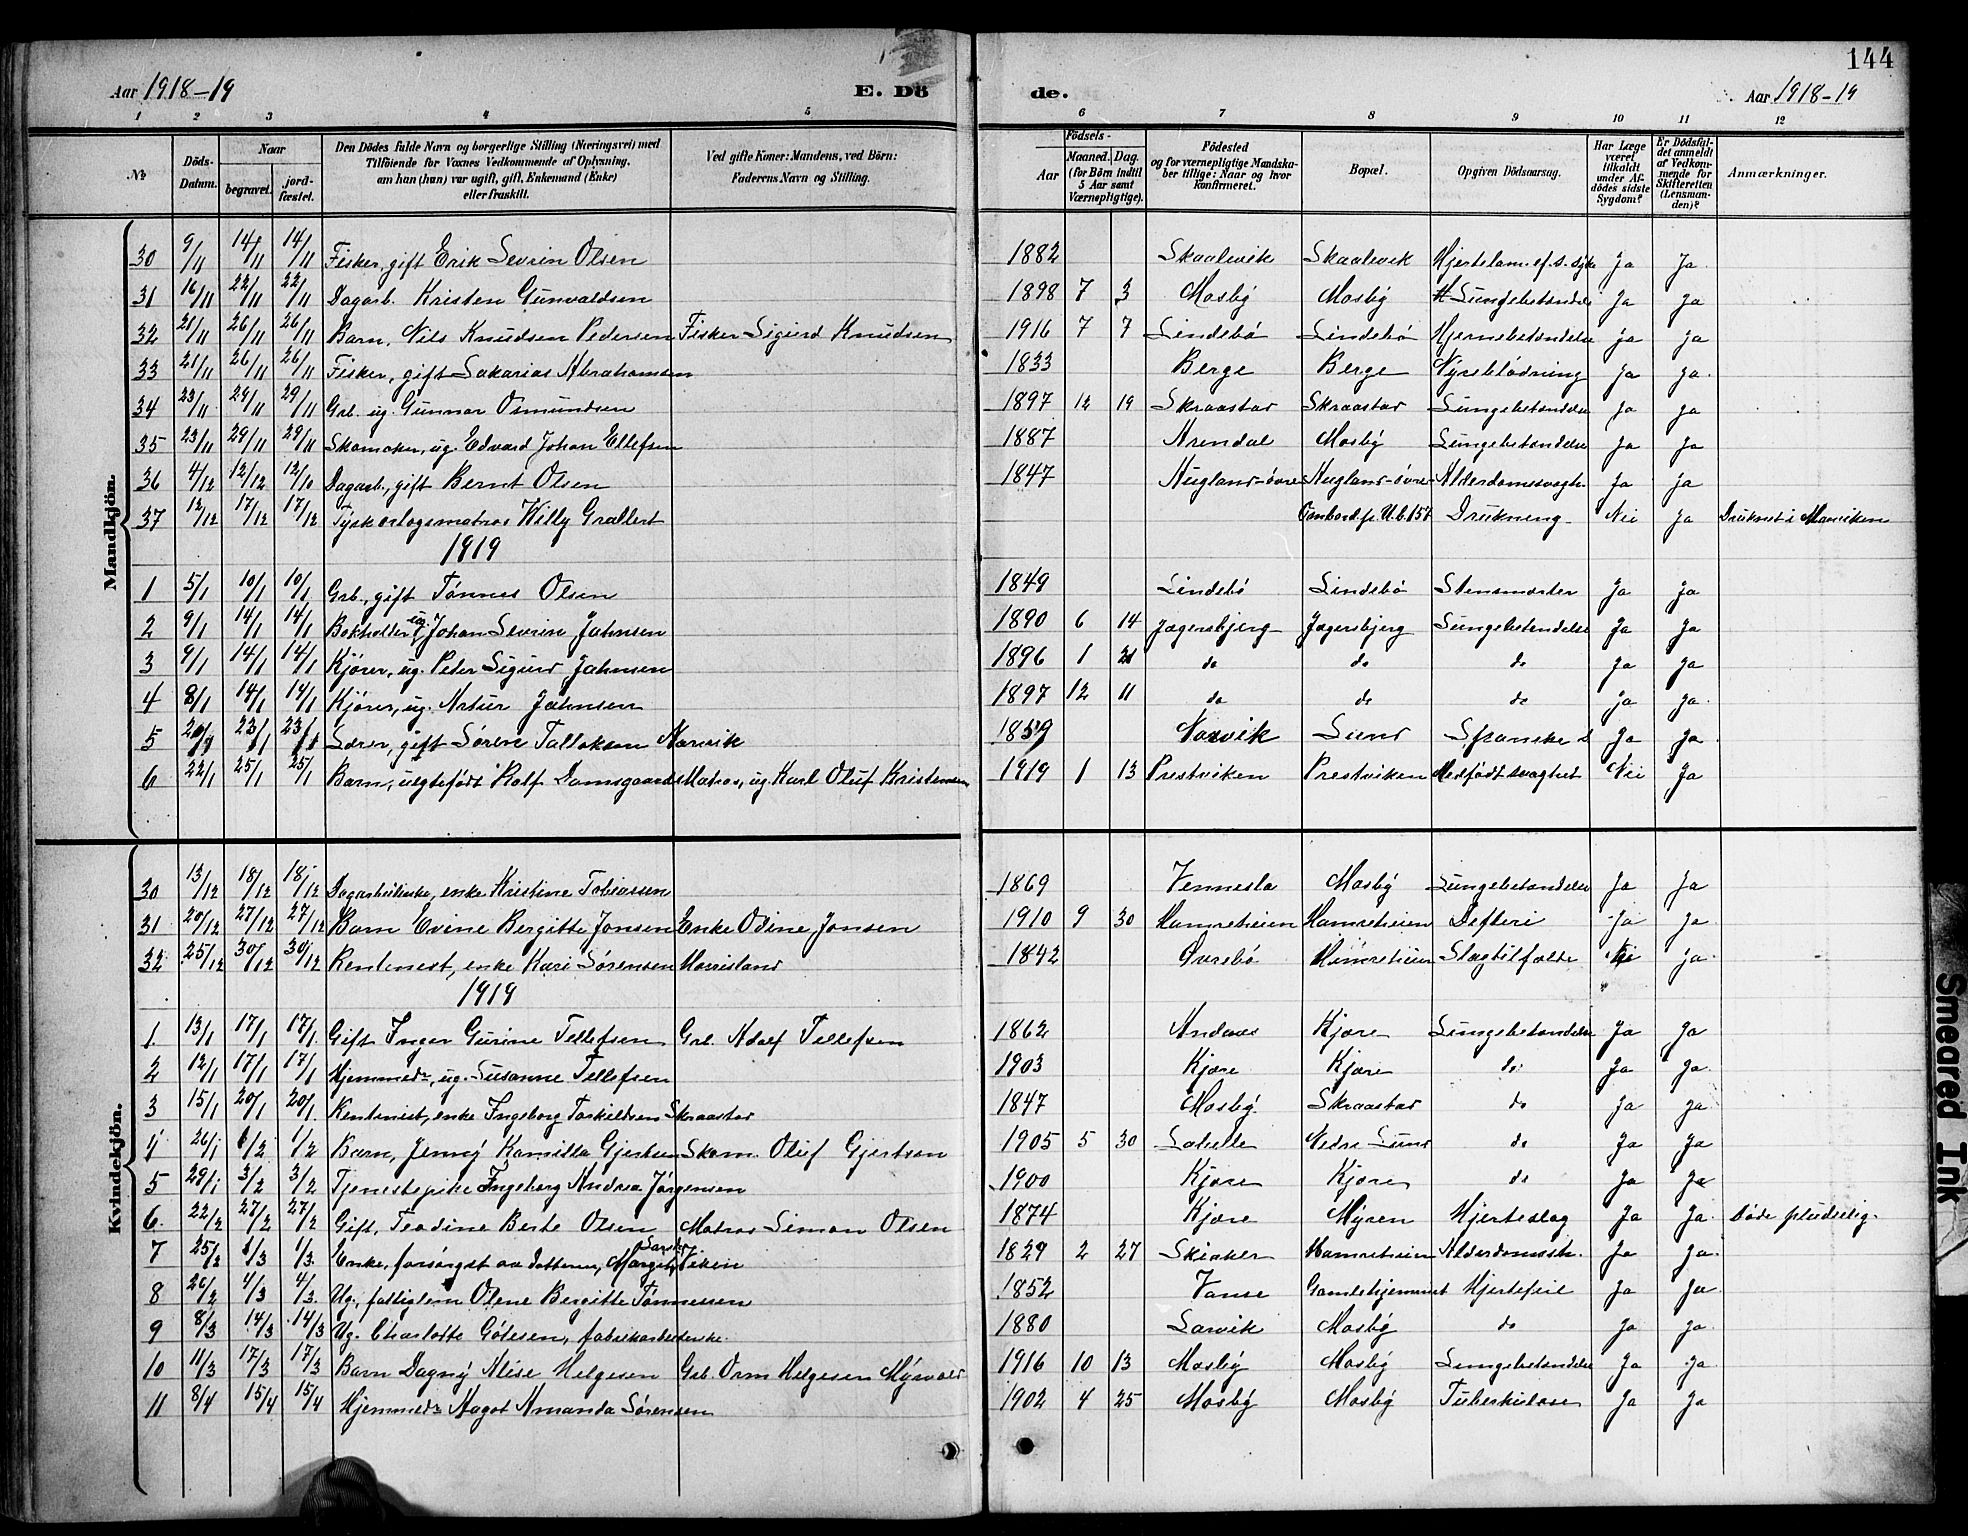 144
Aar 1918-19 E. Dö de. Aar 1918-19
1 2 3 4 5 6 7 8 9 10 11 12
№ Döds-Datum. Naar begravet. jordfæstet. Den Dödes fulde Navn og borgerlige Stilling (Næringsvei) med Tilföiende for Voxnes Vedkommende af Oplysning, om han (hun) var ugift, gift, Enkemand (Enke) eller fraskilt. Ved gifte Koner: Mandens, ved Börn: Faderens Navn og Stilling. Födsels- Aar Maaned. Dag. (for Börn indtil 5 Aar samt Værnepligtige). Födested og for værnepligtige Mandskaber tillige: Naar og hvor konfirmeret. Bopæl. Opgiven Dödsaarsag. Har Læge været tilkaldt under Afdödes sidste Sygdom? Er Dödsfaldet anmeldt af Vedkommende for Skifteretten (Lensmanden)? Anmærkninger.
Mandkjön.
30 9/11 14/11 14/11 Fisker, gift Erik Sevrin Olsen 1882 Skaalevik Skaalevik Hjertelam. ef. s. syke Ja Ja
31 16/11 22/11 22/11 Dagarb. Kristen Gunvaldsen 1898 7 3 Mosby Mosby Lungebetændelse Ja Ja
32 21/11 26/11 26/11 Barn, Nils Knudsen Pedersen Fisker Sigurd Knudsen 1916 7 7 Lindebø Lindebø Hjernebetændelse Ja Ja
33 21/11 26/11 26/11 Fisker, gift Sakarias Abrahamsen 1833 Berge Berge Nyreblødning Ja Ja
34 23/11 29/11 29/11 Grb. ug. Gunnar Osmundsen 1897 12 19 Skraastad Skraastad Lungebetændelse Ja Ja
35 23/11 29/11 29/11 Skomaker, ug. Edvard Johan Ellefsen 1887 Arendal Mosby Lungebetændelse Ja Ja
36 4/12 12/12 12/10 Dagarb., gift Bernt Olsen 1847 Augland-øvre Augland-øvre Alderdomssvagh. Ja Ja
37 12/12 17/12 17/12 Tysk orlogsmatros Willy Grallert Ombord p. U.b. 157 Drukning Nei Ja Druknet i
1919
1 5/1 10/1 10/1 Grb., gift Tønnes Olsen 1849 Lindebø Lindebø Stensmerter Ja Ja
2 9/1 14/1 14/1 Bokholder, ug. Johan Sevrin Jahnsen 1890 6 14 Jægersbjerg Jægersbjerg Lungebetændelse Ja Ja
3 9/1 14/1 14/1 Kjører, ug. Peder Sigurd Jahnsen 1896 1 21 do do do Ja Ja
4 8/1 14/1 14/1 Kjører, ug. Artur Jahnsen 1897 12 11 do do do Ja Ja
5 20/1 23/1 23/1 Lærer, gift Søren Tallaksen Narvik 1859 Narvik Lund Spanske s Ja Ja
6 22/1 25/1 25/1 Barn, uegtefødt Rolf Damsgaard Matros, ug. Karl Oluf Kristensen 1919 1 13 Prestviken Prestviken Medfødt svaghet Nei Ja
Kvindekjön.
30 13/12 18/12 18/12 Dagarbeiderske, enke Kristine Tobiassen 1869 Vennesla Mosby Lungebetændelse Ja Ja
31 20/12 27/12 27/12 Barn Evine Bergitte Jonsen Enke Odine Jonsen 1910 9 30 Hamreheien Hamreheien Defteri Ja Ja
32 25/12 30/12 30/12 Rentenist, enke Kari Sørensen Homisland 1842 Øvrebø Hamreheien Slagtilfælde Nei Ja
1919
1 13/1 17/1 17/1 Gift Inger Gurine Tellefsen Grb. Adolf Tellefsen 1862 Andaas Kjære Lungebetændelse Ja Ja
2 12/1 17/1 17/1 Hjemmedr, ug. Susanne Tellefsen 1903 Kjære Kjære do Ja Ja
3 15/1 20/1 20/1 Rentenist, enke Ingeborg Torkildsen Skraastad 1847 Mosby Skraastad do Ja Ja
4 26/1 1/2 1/2 Barn, Jenny Kamilla Gjertsen Skom. Oluf Gjertsen 1905 5 30 Labelle Nedre Lund do Ja Ja
5 29/1 3/2 3/2 Tjenestepike Ingeborg Andrea Jørgensen 1900 Kjære Kjære do Ja Ja
6 22/2 27/2 27/2 Gift, Teodine Berte Olsen Matros Simon Olsen 1874 Kjære Myren Hjerteslag Ja Ja Døde pludselig.
7 25/2 1/3 1/3 Enke, forsørget av datteren, Margit Viken 1829 2 27 Skiaker Hamreheien Alderdomssv. Ja Ja
8 26/2 4/3 4/3 Ug., fattiglem Olene Bergitte Tønnessen 1852 Vanse Gamlehjemmet Hjertefeil Ja Ja
9 8/3 14/3 14/3 Ug. Charlotte Götesen, fabrikarbeiderske 1880 Larvik Mosby do Ja Ja
10 11/3 17/3 17/3 Barn Dagny Alise Helgesen Grb. Orm Helgesen Myrvold 1916 10 13 Mosby Mosby Lungebetændelse Ja Ja
11 8/4 15/4 15/4 Hjemmedr Aagot Amanda Sørensen 1902 4 25 Mosby Mosby Tuberkulose Ja Ja
Smeared Ink